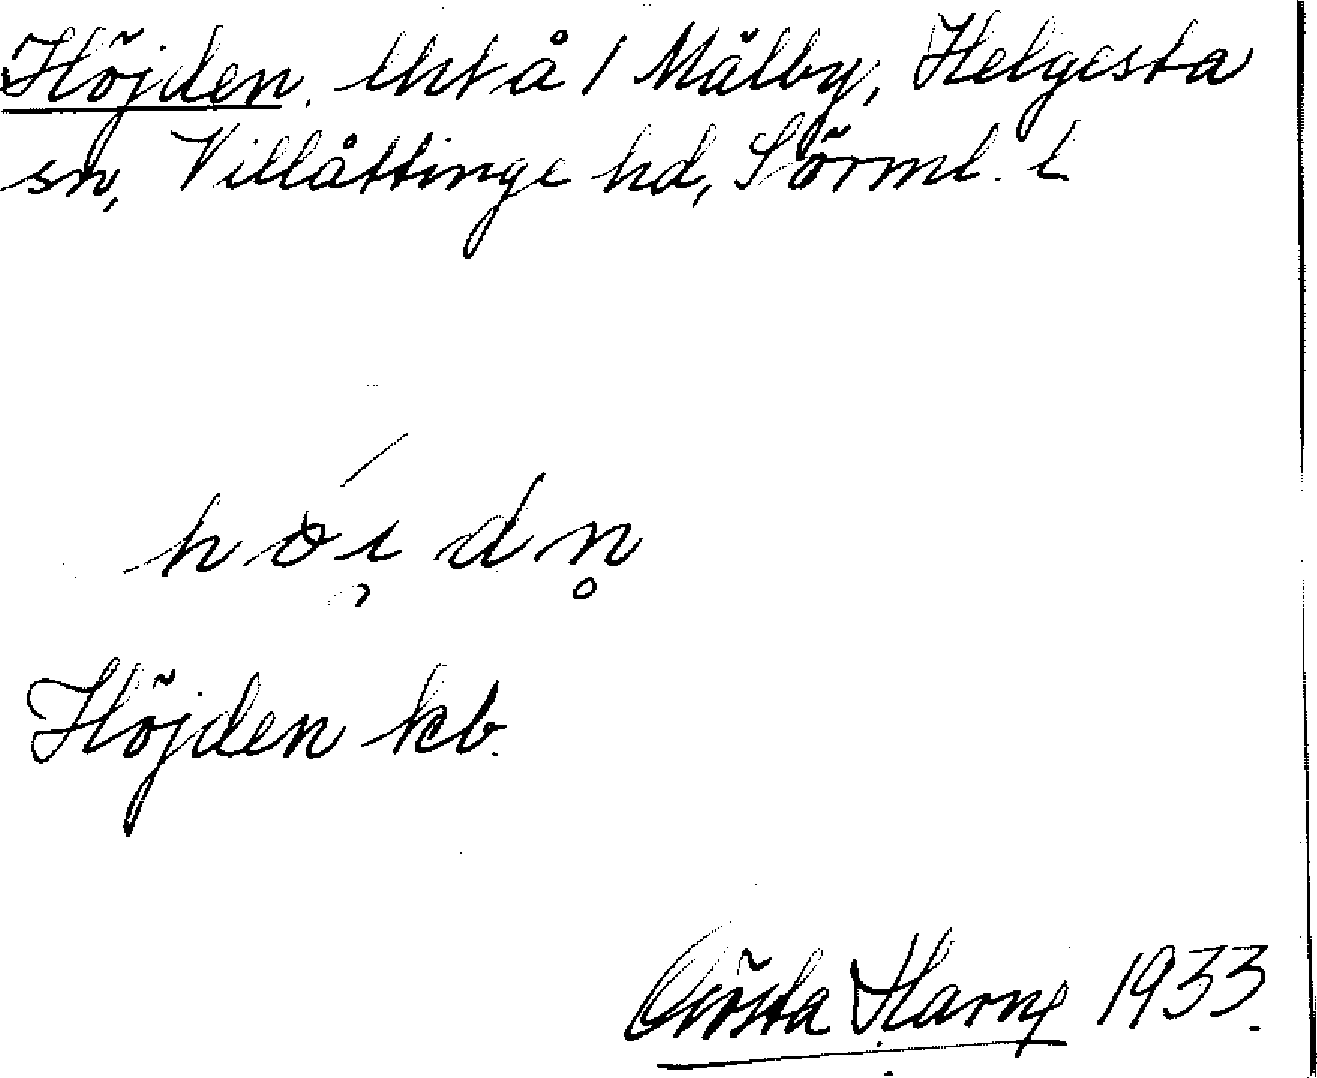 Höjden, lht å 1 Mälby, Helgesta
sn, Villåttinge hd, Sörml. l
Höjden kb.
Gösta Harng 1933.